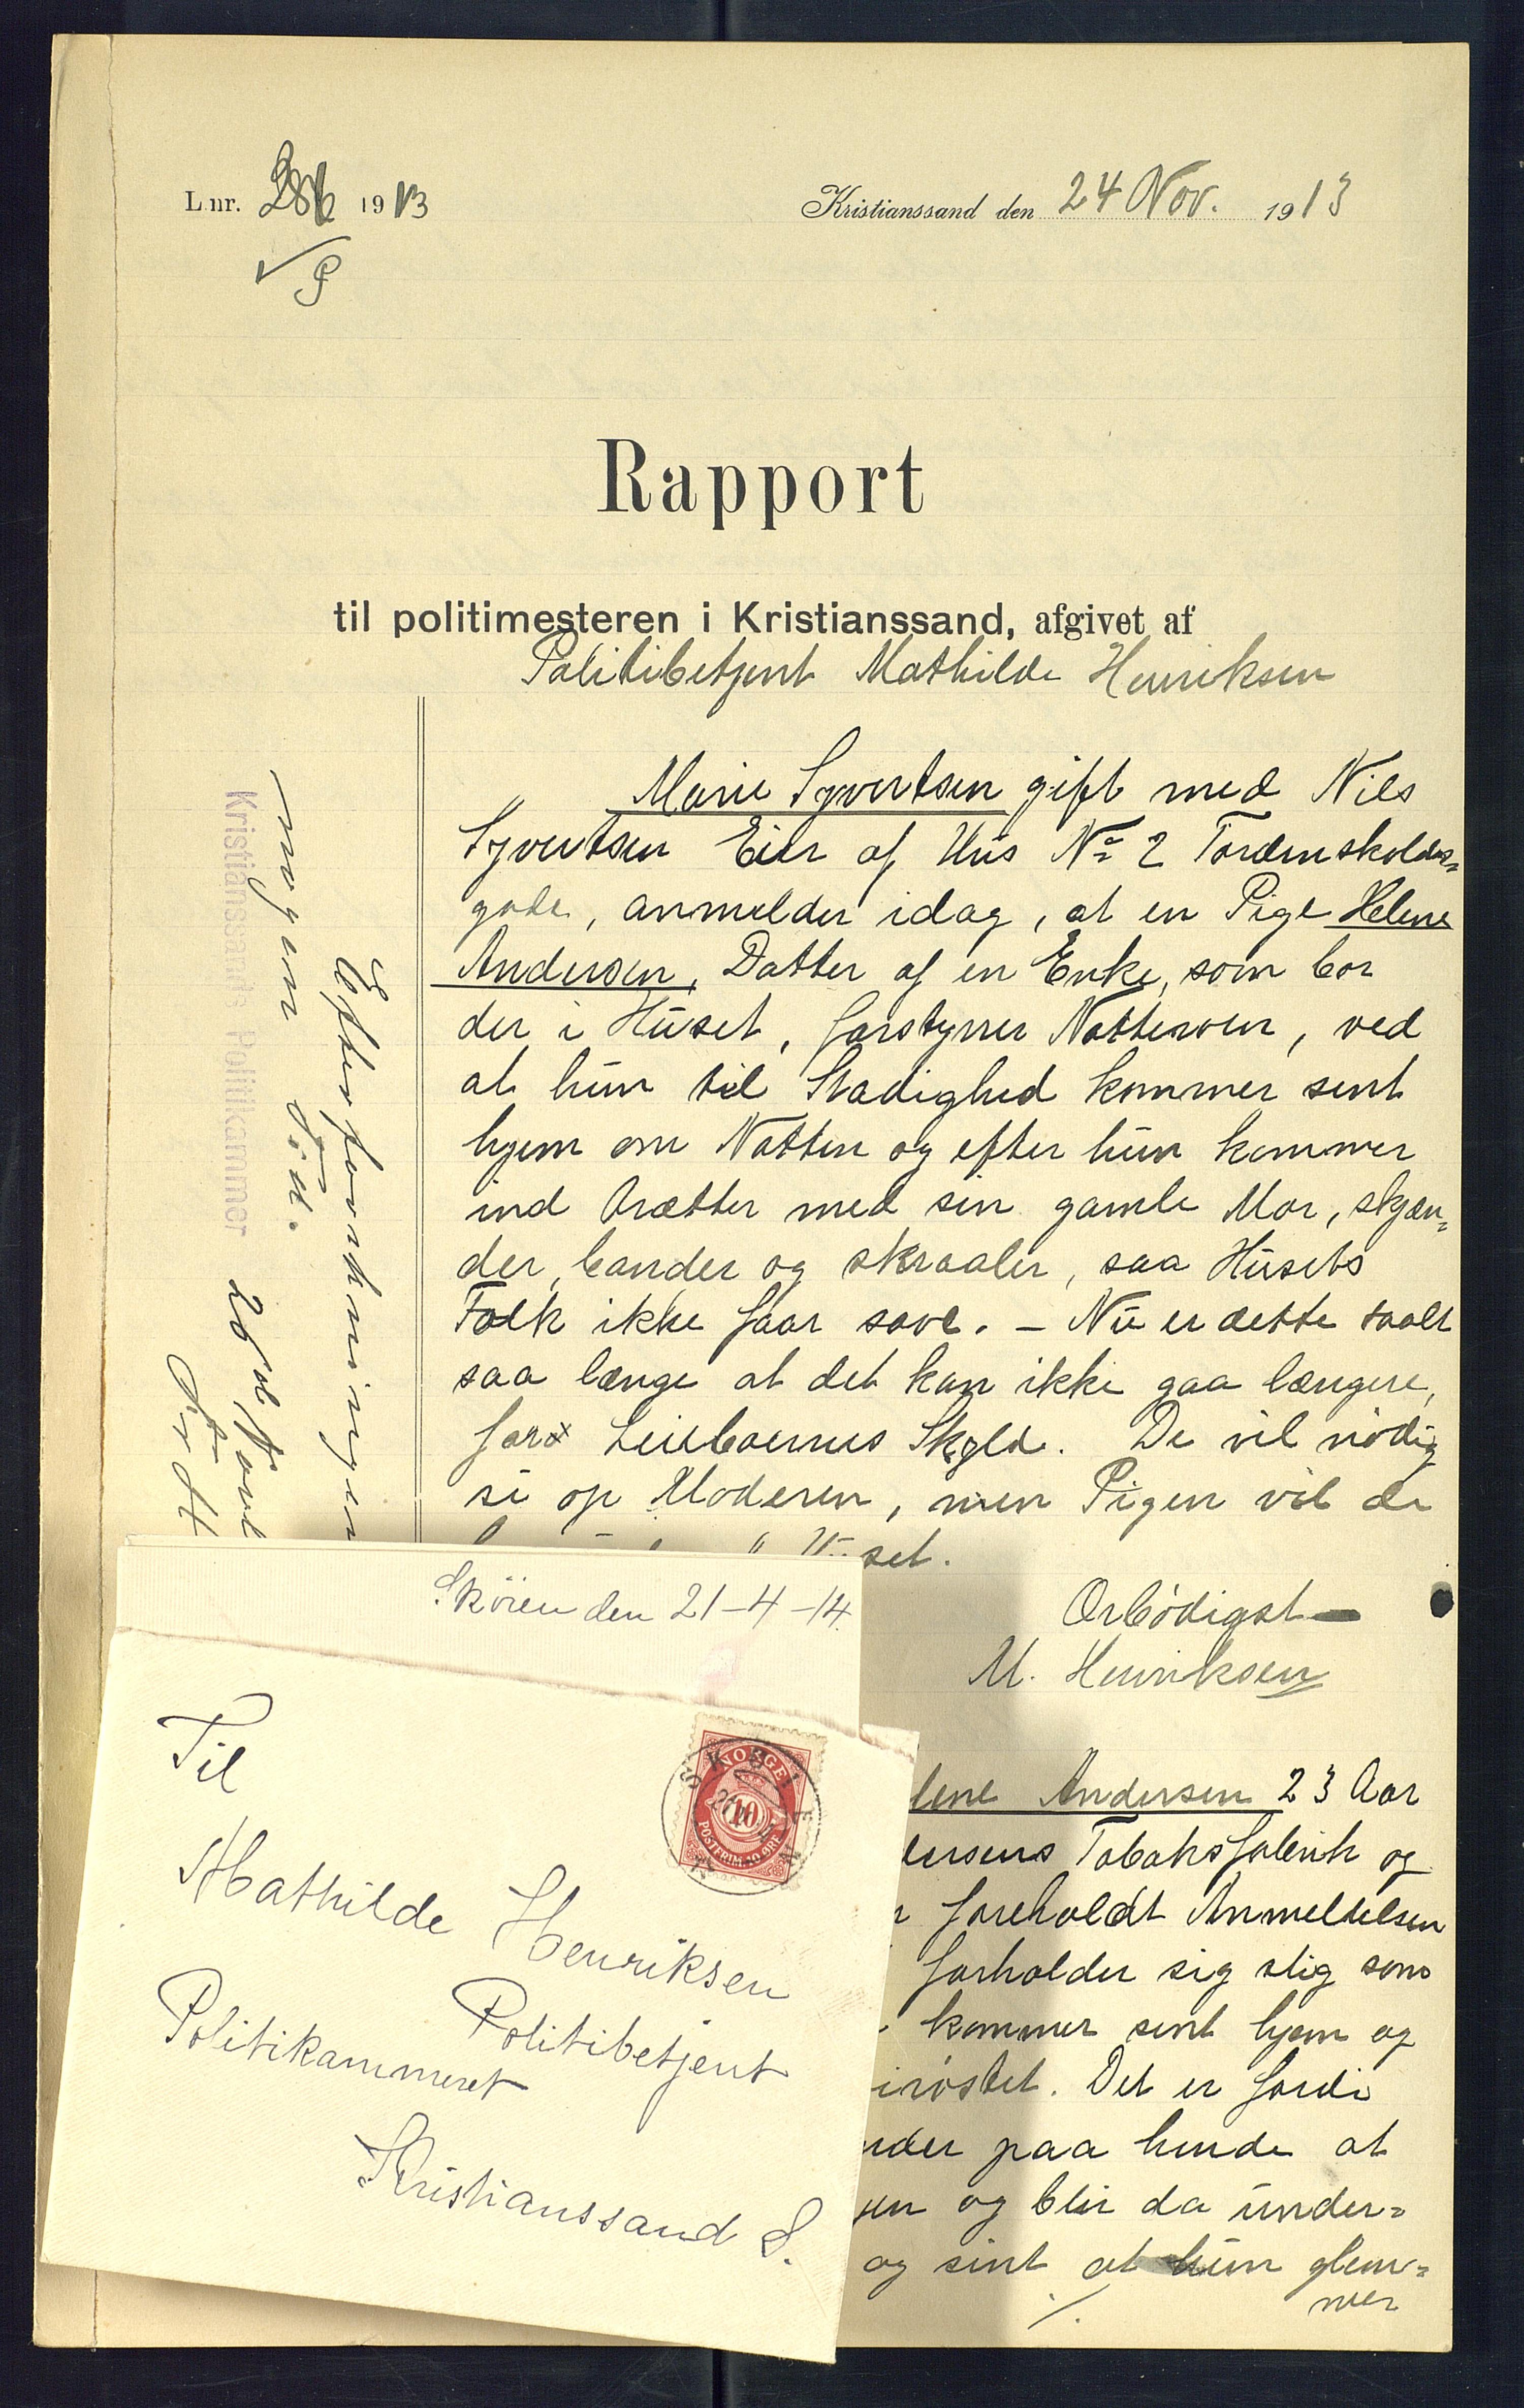 L.nr. 1913
Kristianssand den 24 Nov. 1913
Rapport
til politimesteren i Kristianssand, afgivet af
Politibetjent Mathilde Henriksen
Marie Syvertsen gift med Nils
Syvertsen Eier af Hus No 2 Tordenskolds=
gade, anmelder idag, at en Pige Helene
Andersen, Datter af en Enke, som bor
der i Huset, forstyrrer Nattero­en, ved
at hun til Stadighed kommer sent
hjem om Natten og efter hun kommer
ind trætter med sin gamle Mor, skjæn=
der, bander og skraaler, saa Husets
Folk ikke faar sove. – Nu er dette taalt
saa længe at det kan ikke gaa længere,
for Leieboernes Skyld. De vil nødig
si op Moderen, men Pigen vil de
set.
Ærbødigst
M. Henriksen
lene Andersen 23 Aar
dersens Tobaksfabrik og
foreholdt Anmeldelsen
forholder sig slig som
kommer sent hjem og
irøstet. Det er fordi
nder paa hende at
en og blir da under=
og sint at hun glem=
mer
./.
Efterforskningen
Kristianssands Politikammer
Sköien den 21-4-14.
Til
Mathilde Henriksen
Politibetjent
Politikammeret
Kristianssand S.
NORGE
10
POSTFRIM. 10 ØRE